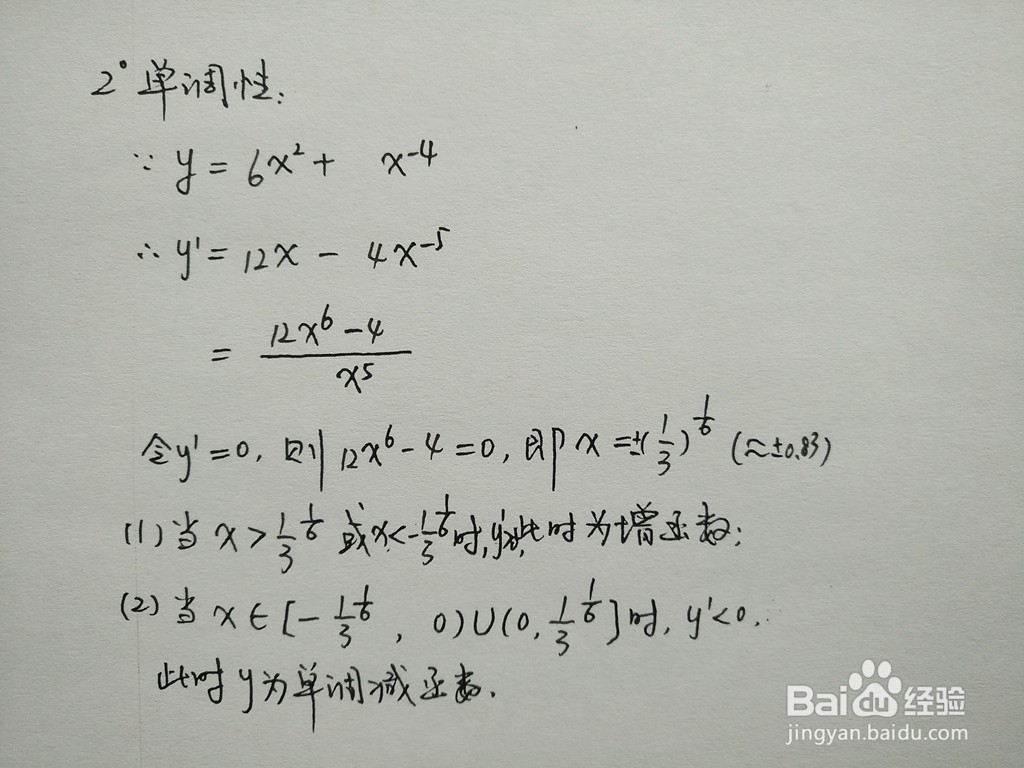 2° 单调性:
∵ y = 6x² + x⁻⁴
∴ y' = 12x - 4x⁻⁵
= (12x⁶ - 4)/x⁵
令y'=0, 则 12x⁶-4=0, 即 x=±(1/3)^(1/6) (≈±0.83)
(1) 当 x > 1/3^(1/6) 或x<-1/3^(1/6)时, y'>0, 此时为增函数;
(2) 当 x∈[-1/3^(1/6), 0)∪(0, 1/3^(1/6)]时, y'<0.
此时y为单调减函数.
Baidu 经验
jingyan.baidu.com